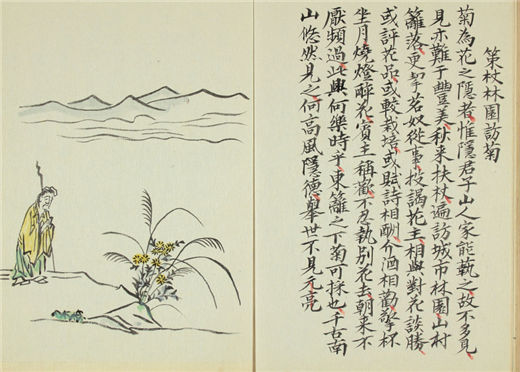 策杖林園訪菊
菊為花之隱者惟隱君子山人家能藝之故不多見
見亦難于豐美秋来扶杖遍訪城市林園山村
籬落更挈茗奴從事投謁花主相與對花談勝
或評花品或較栽培或賦詩相酬介酒相勸擎杯
坐月燒燈醉花賓主稱歡不忍執別花去朝来不
厭頻過此興何樂時乎東籬之下菊可採也千古南
山悠然見之何高風隱德舉世不見元亮